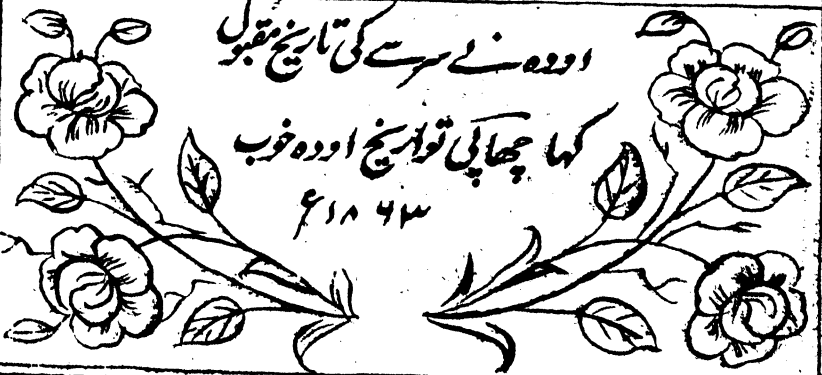 اودہ نے سر سے کی تاریخ مقبول
کہا چھاپی تواریخ اودہ خوب
۱۸۶۳ء